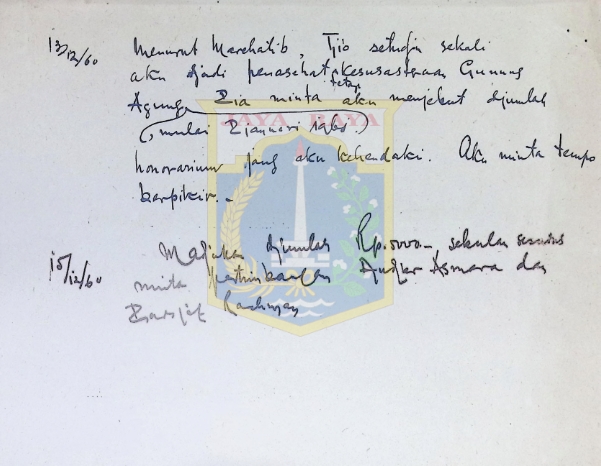 13/12/60 Menurut Marchatib, Tjio setudju sekali
aku djadi penasehat kesusastraan Gunung
tetapi
Agung. Dia minta aku menjebut djumlah
(mulai Djanuari 1961)
JAYA RAYA
honorarium jang aku kehendaki. Aku minta tempo
berpikir.-
15/12/60 Madjukan djumlah Rp. 5000.- sebulan sesudah
minta pertimbangan Andjar Asmara dan
Rachman